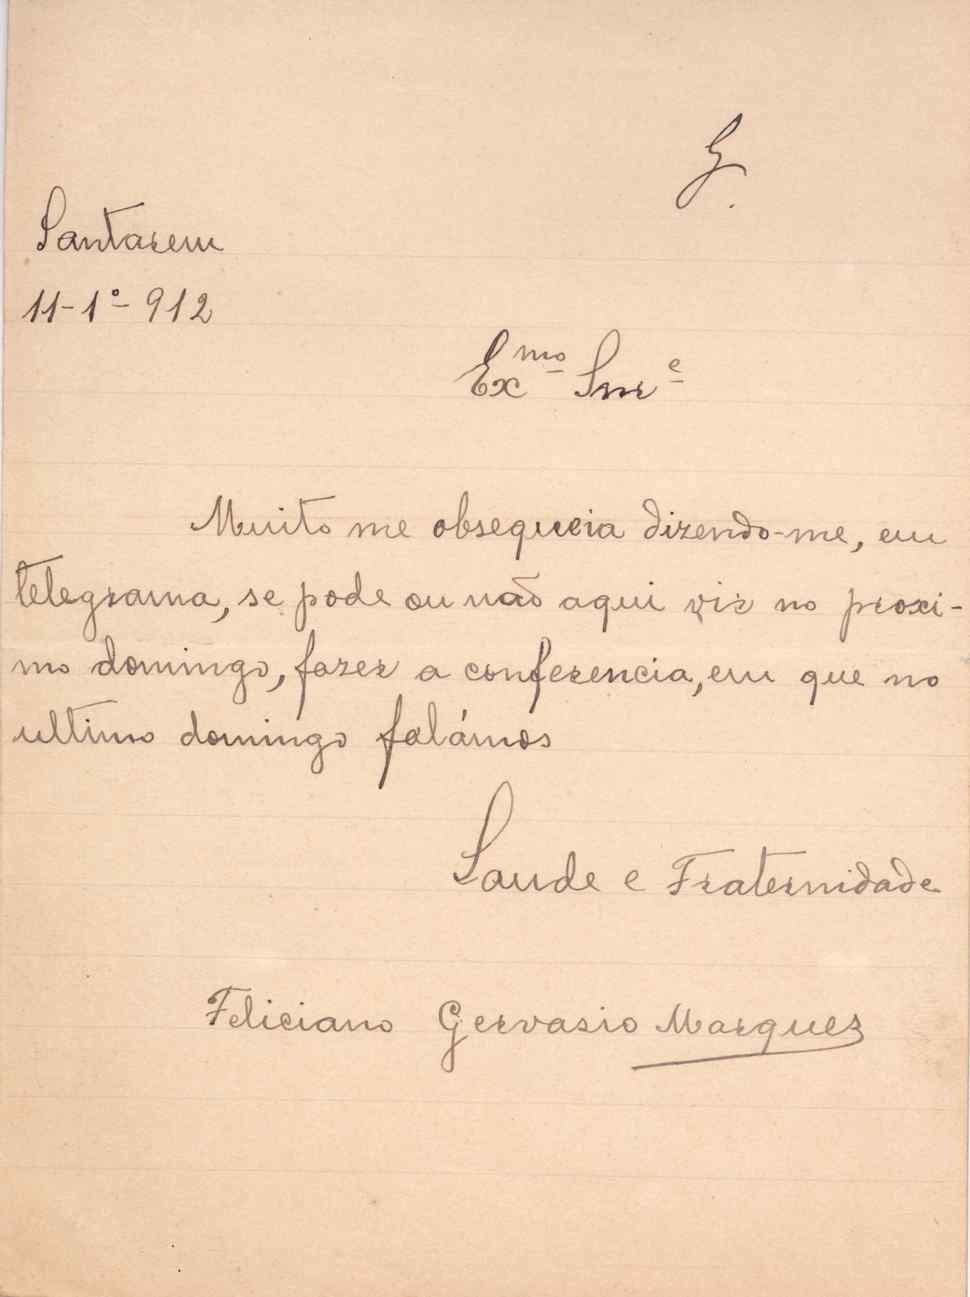 G.
Santarem
11-1º-912
Exmo Snre
Muito me obsequeia dizendo-me, em
telegrama, se pode ou não aqui vir no proxi-
mo domingo, fazer a conferencia, em que no
ultimo domingo falámos
Saude e Fraternidade
Feliciano Gervasio Marques